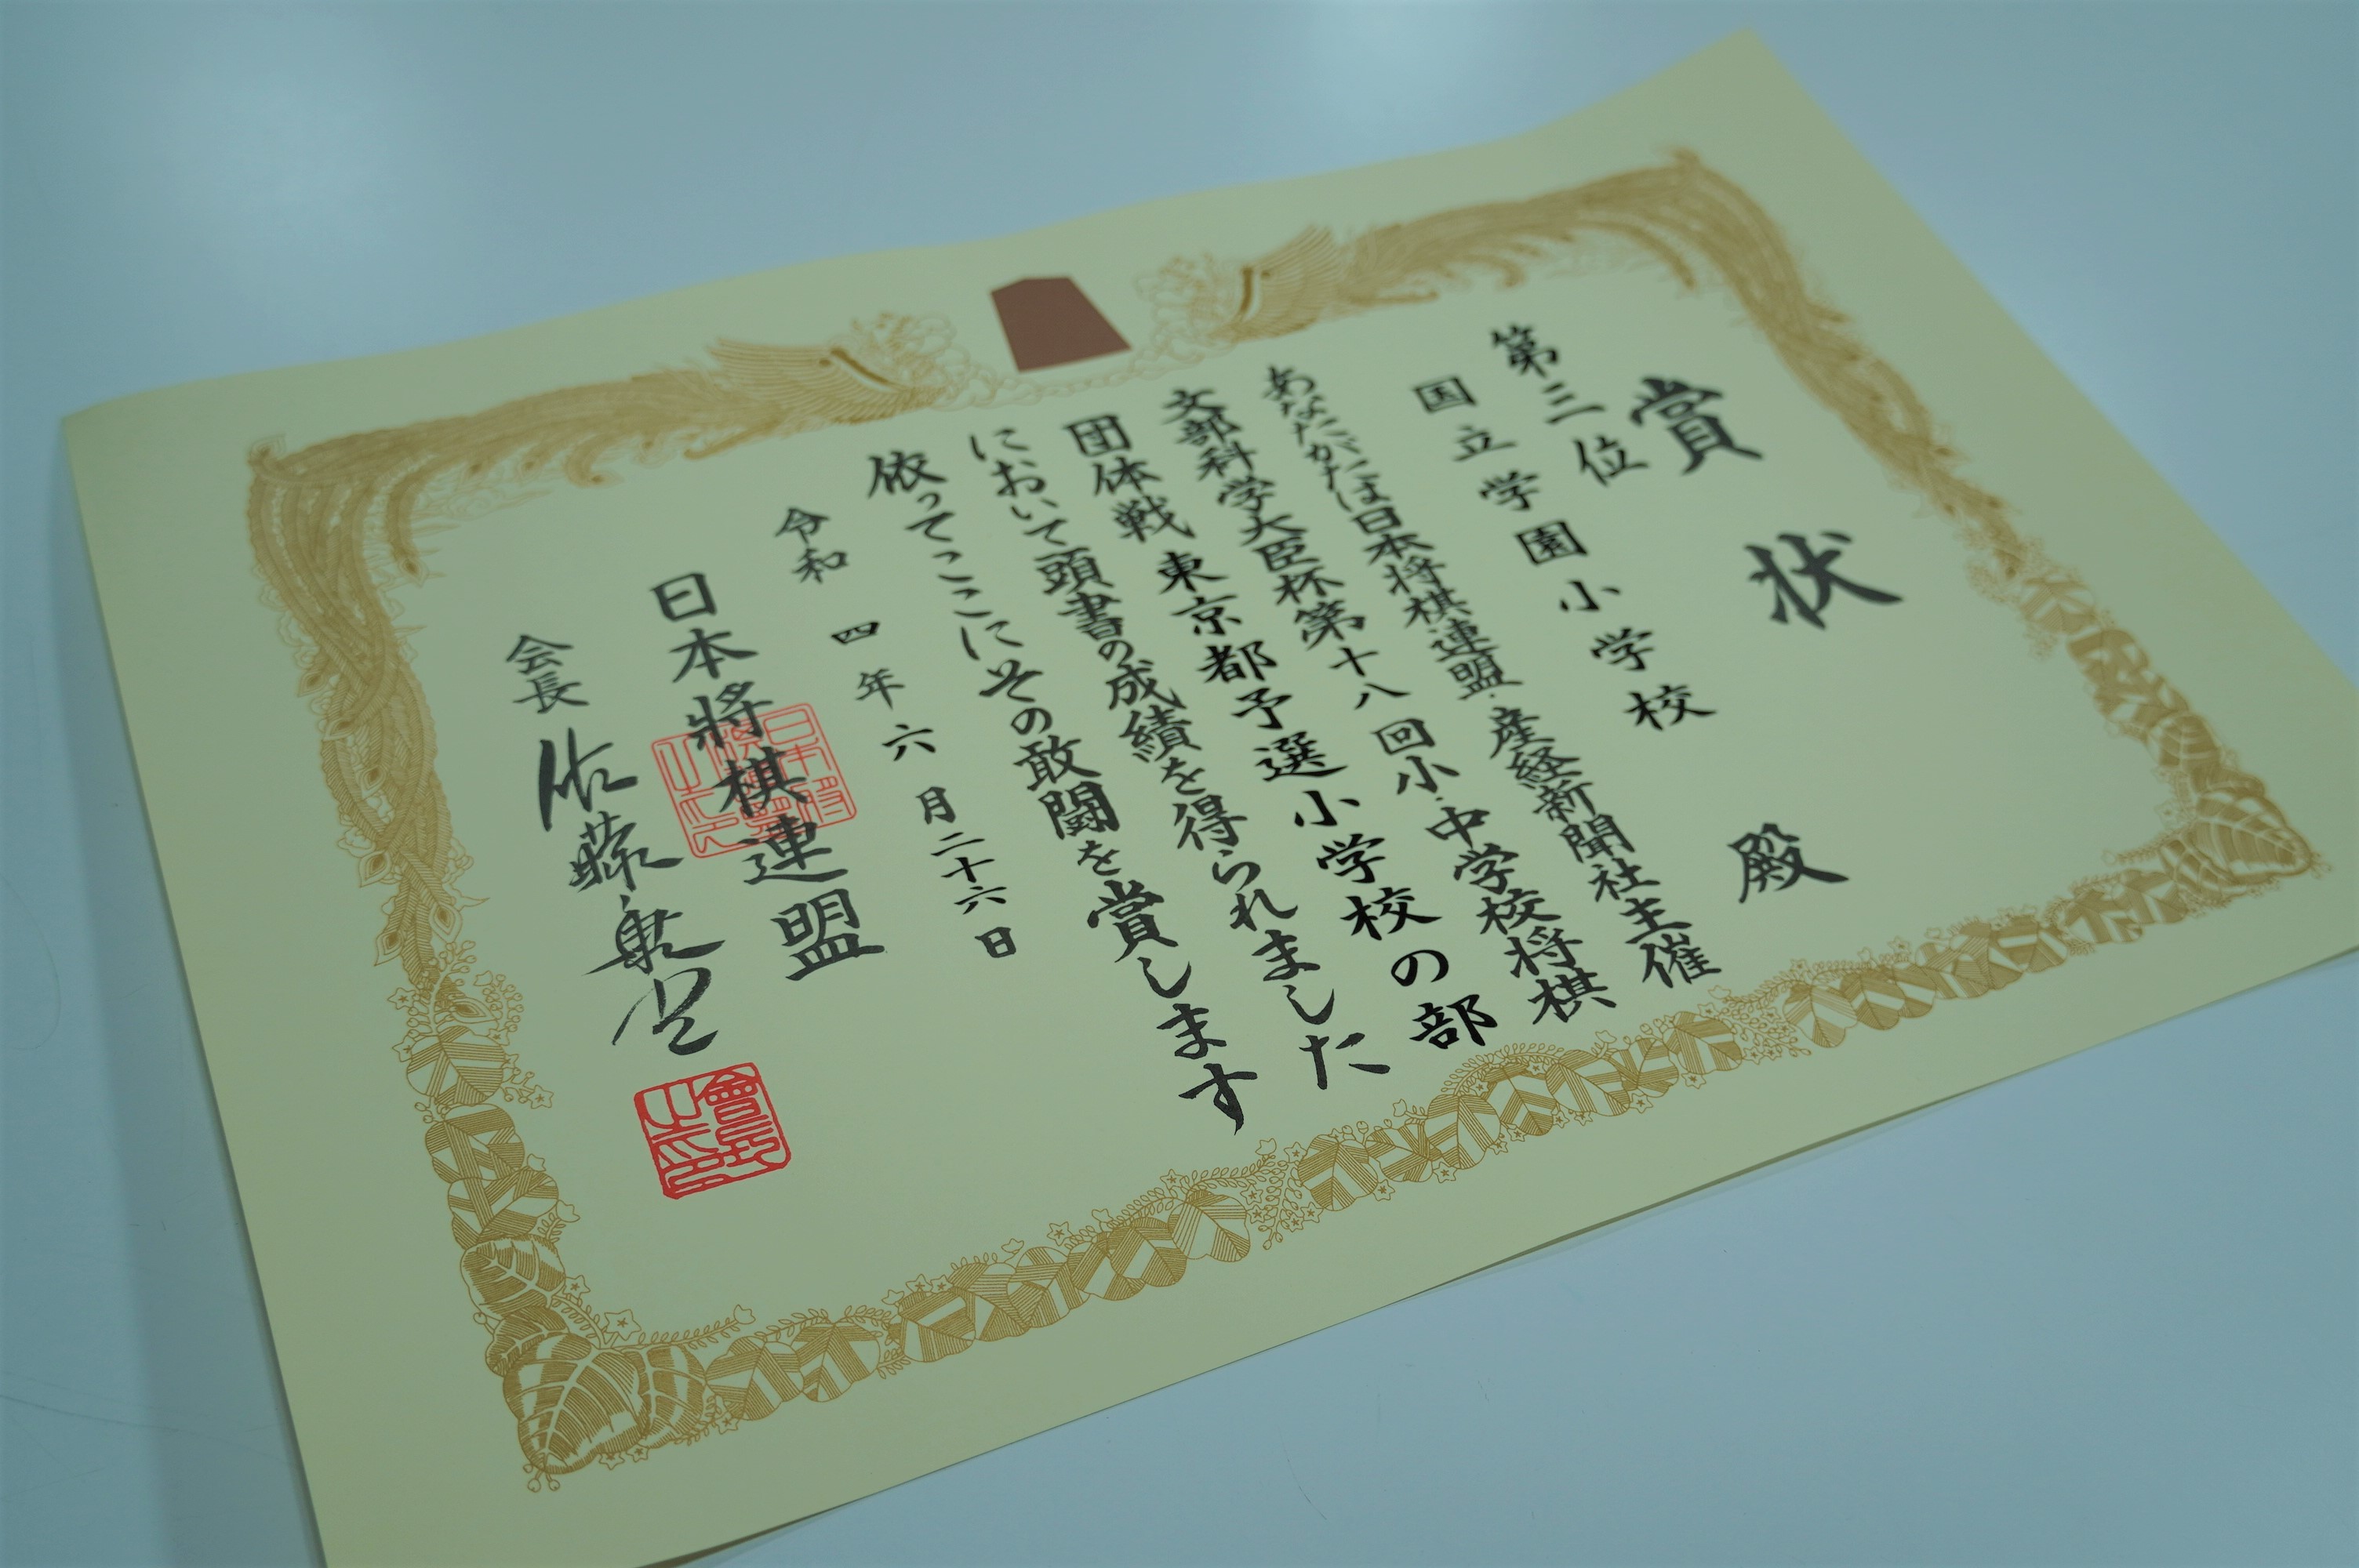 賞状
第三位
国立学園小学校 殿
あなたがたは日本将棋連盟・産経新聞社主催
文部科学大臣杯第十八回小・中学校将棋
団体戦東京都予選小学校の部
において頭書の成績を得られました
依ってここにその敢闘を賞します
令和四年六月二十六日
日本将棋連盟
会長 佐藤康光
會長之印